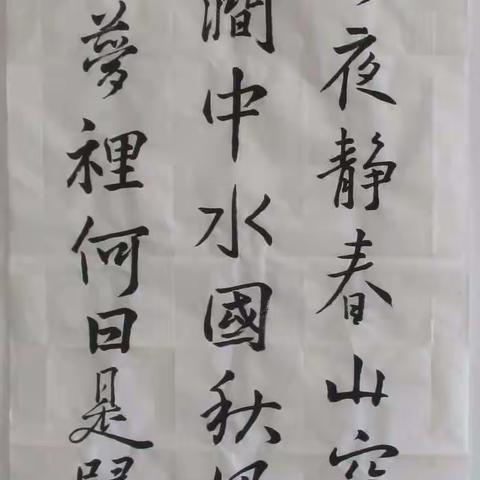 夜静春山空
澗中水國秋風
夢裡何日是歸